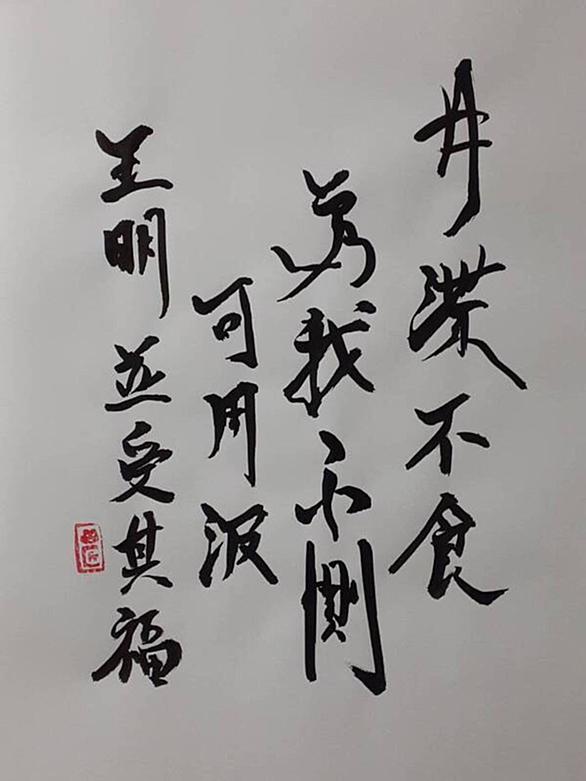 井渫不食
為我心惻
可用汲
王明並受其福